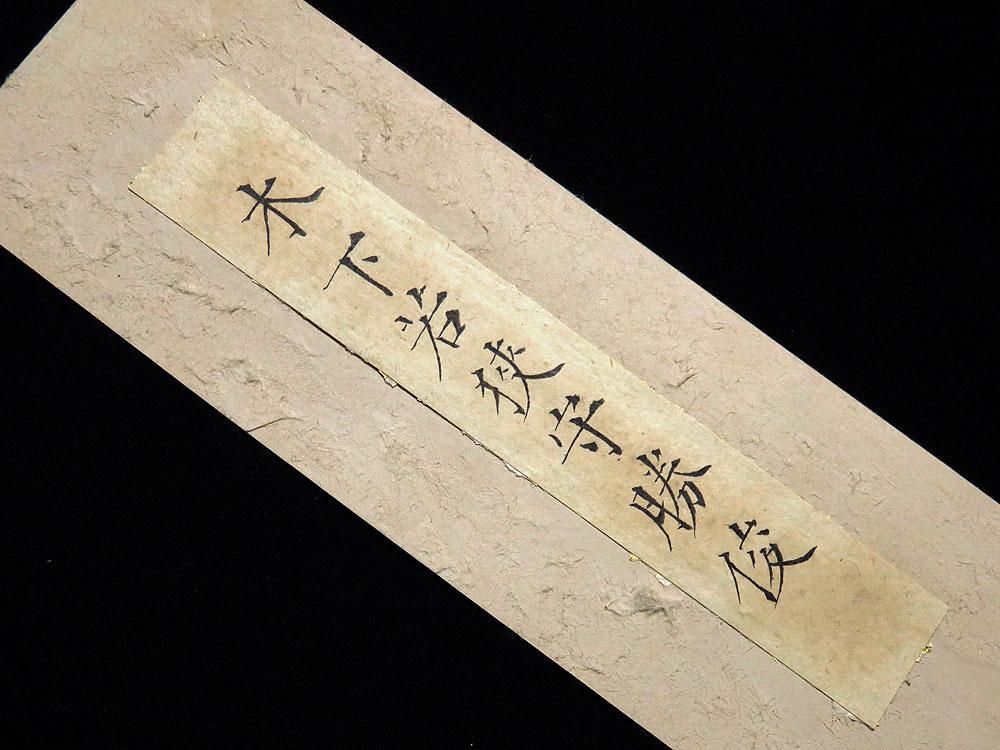 木下若狭守勝俊